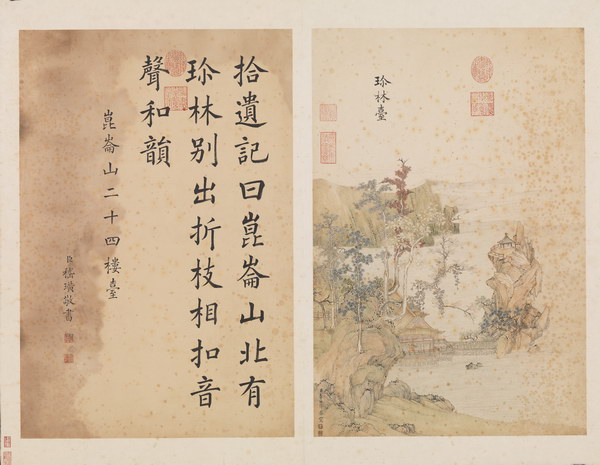 珎林臺
拾遺記曰崑崙山北有
珎林別出折枝相扣音
聲和韻
崑崙山二十四樓臺
臣嵇璜敬書